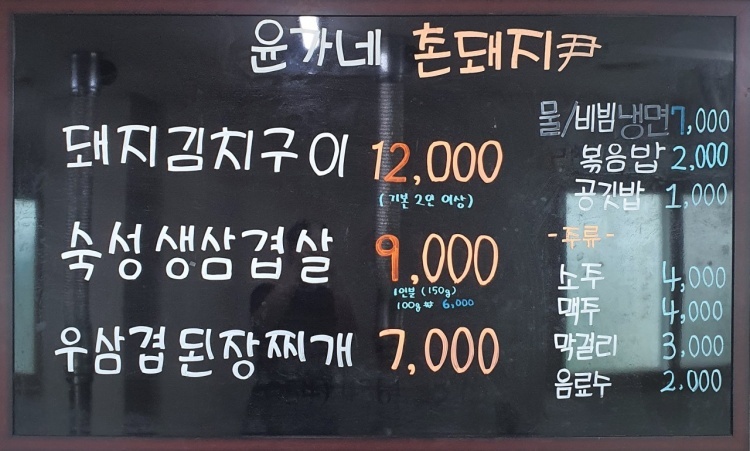 윤가네 촌돼지尹
돼지김치구이 12,000
(기본 2인 이상)
숙성생삼겹살 9,000
1인분 (150g)
100g 当 6,000
우삼겹된장찌개 7,000
물/비빔냉면 7,000
볶음밥 2,000
공깃밥 1,000
-주류-
소주 4,000
맥주 4,000
막걸리 3,000
음료수 2.000